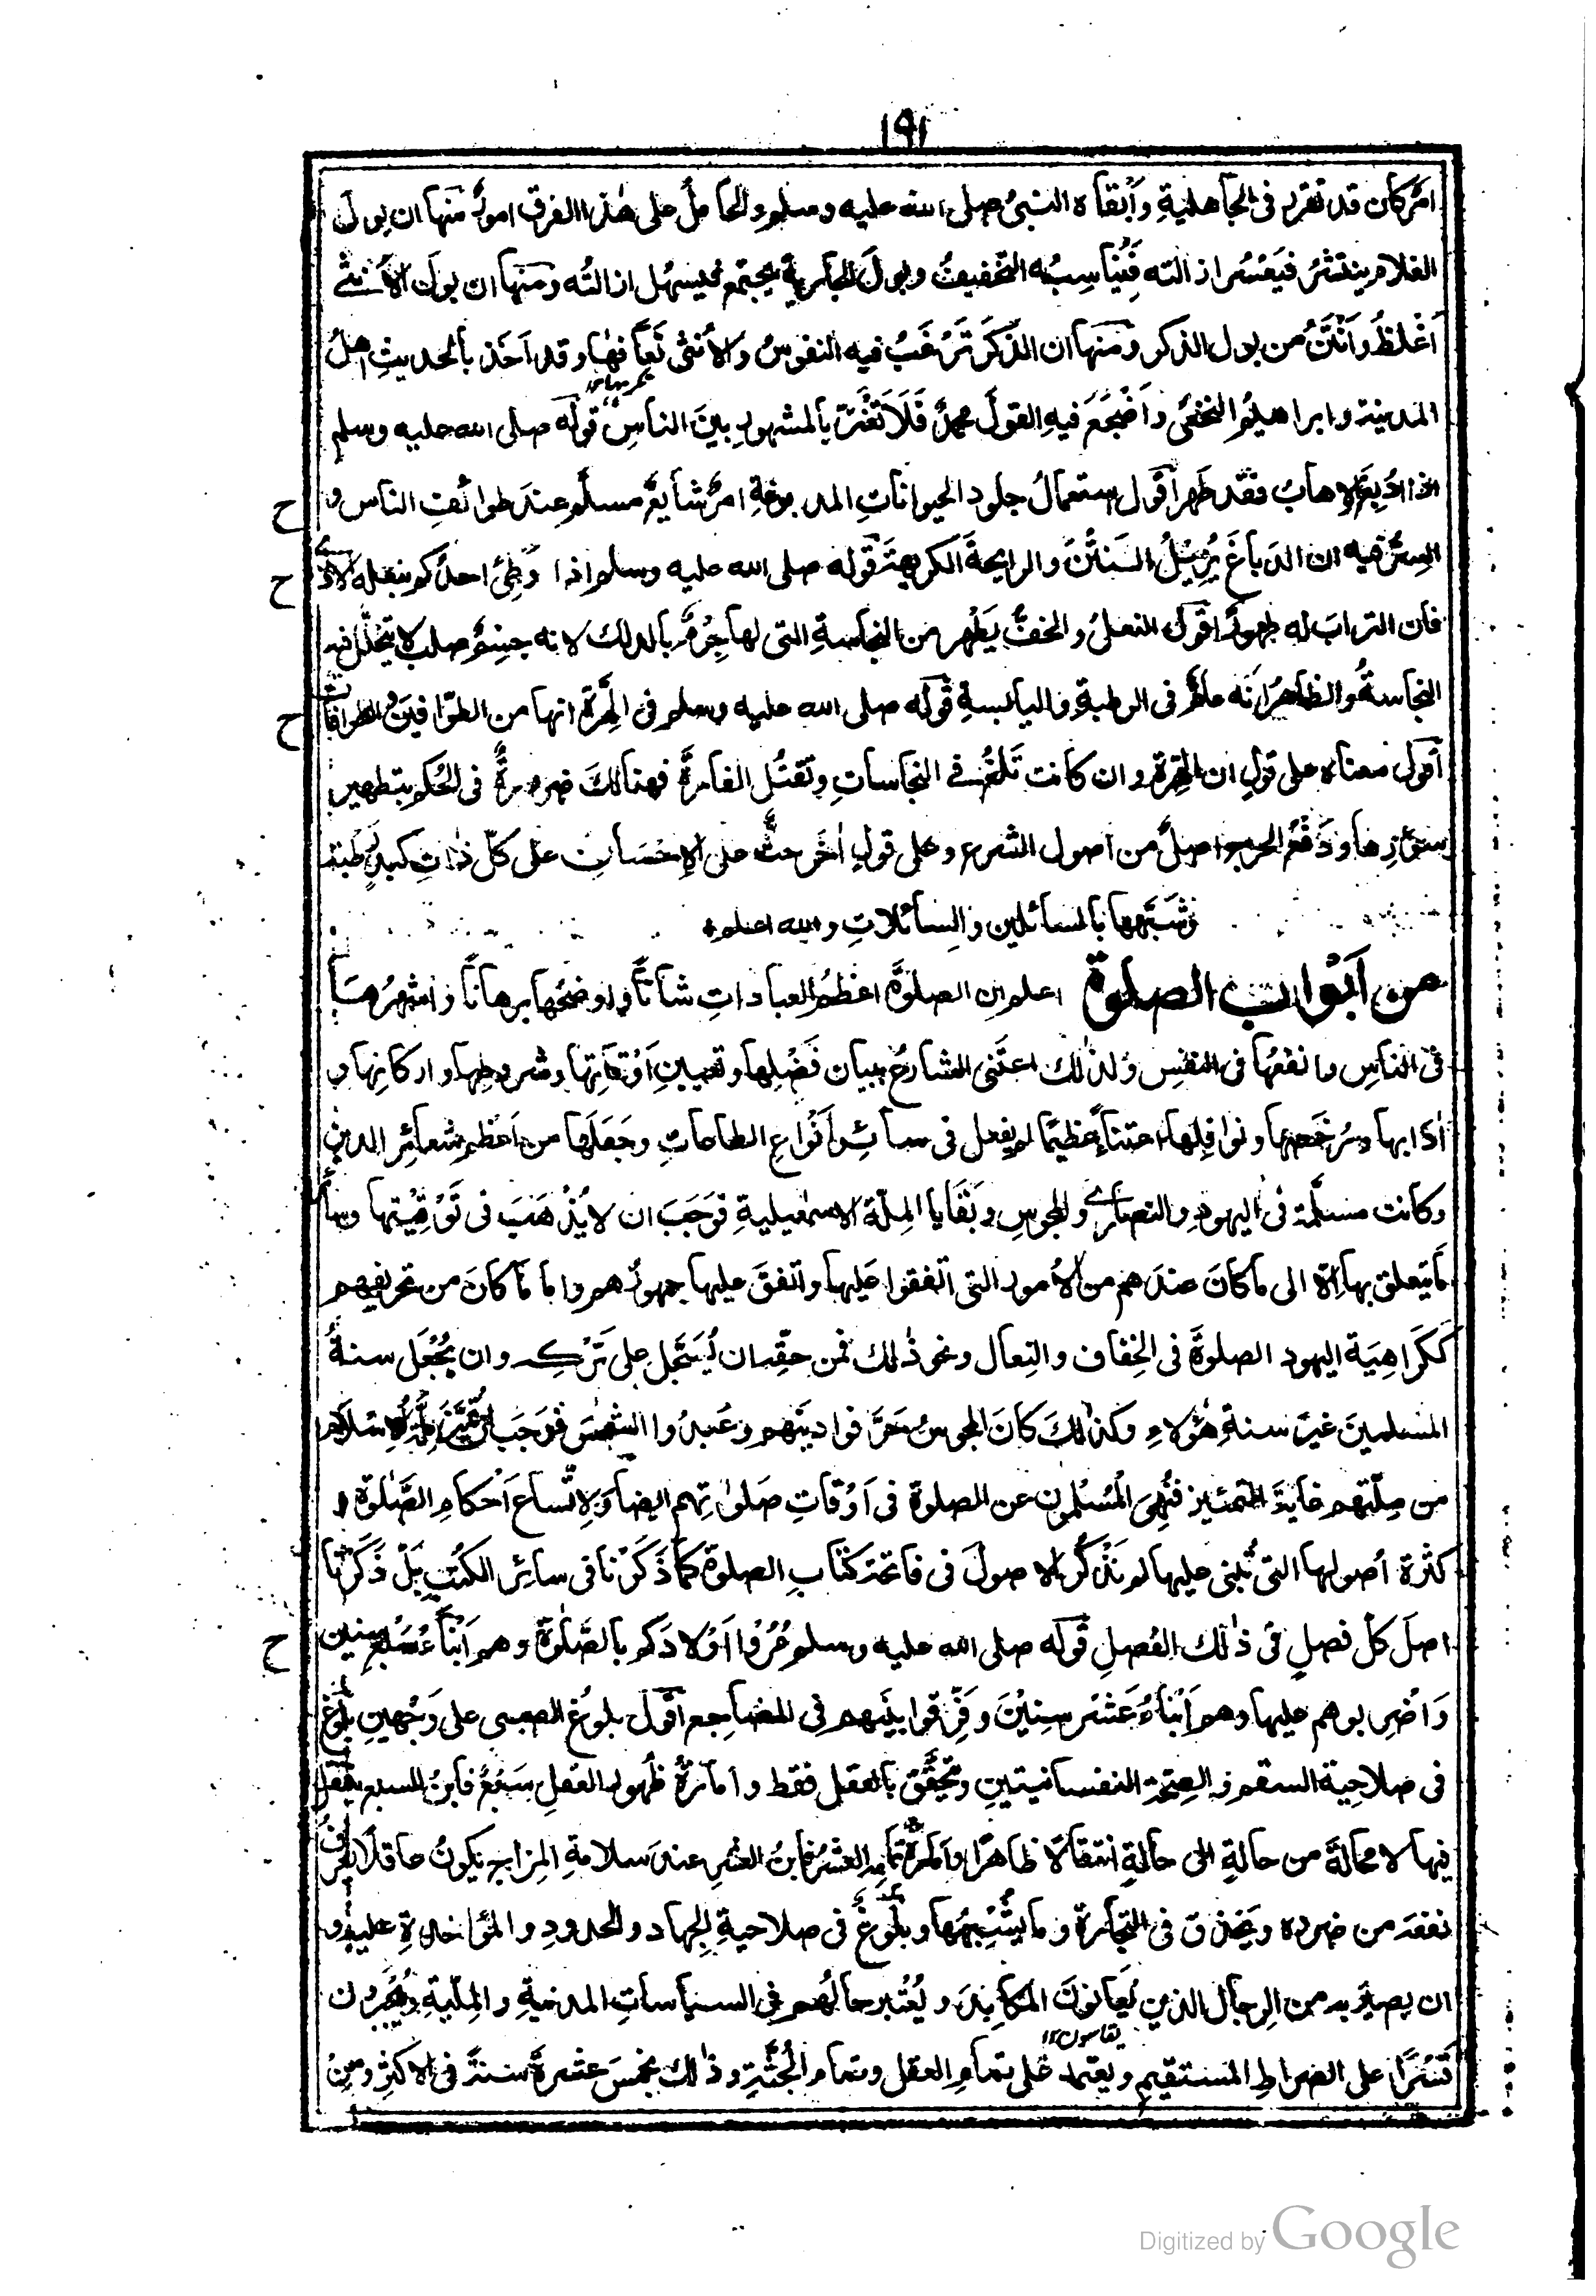 ١٩١
امر كان قد تقرر فى الجاهلية وأبقاه النبى صلى الله عليه وسلم والحامل على هذا الفرق امور منها ان بول
الغلام ينتشر فيعسر ازالته فيناسبه التخفيف وبول الجارية يجتمع فيسهل ازالته ومنها ان بول الأنثى
أغلظ وأنتن من بول الذكر ومنها ان الذكر ترغب فيه النفوس والأنثى تعافها وقد اخذ بالحديث اهل
المدينة وابراهيم النخعى واضجع فيه القول محمد فلا تغتر بالمشهور بين الناس قوله صلى الله عليه وسلم
اذا دبغ الاهاب فقد طهر أقول استعمال جلود الحيوانات المدبوغة امر شايع مسلم عند طوائف الناس و
ح
السر فيه ان الدباغ يزيل النتن والرايحة الكريهة قوله صلى الله عليه وسلم اذا وطئ احدكم بنعله الاذى
ح
فان التراب له طهور اقول النعل والخف يطهر من النجاسة التى لها جرم بالدلك لانه جسم صلب لا يتخلل فيه
النجاسة والظاهر انه عام فى الرطبة واليابسة قوله صلى الله عليه وسلم فى الهرة انها من الطوافين والطوافات
ح
أقول معناه على قول ان الهرة وان كانت تلغ فى النجاسات وتقتل الفارة فهنالك ضرورة فى الحكم بتطهير
سؤرها ودفع الحرج اصل من اصول الشرع وعلى قول أخر حث على الإحسان على كل ذات كبد رطبة
وشبهها بالسائلين والسائلات والله اعلم
من أبواب الصلوة اعلم ان الصلوة اعظم العبادات شانا واوضحها برهانا واشهرها
فى الناس وانفعها فى النفس ولذلك اعتنى الشارع ببيان فضلها وتعيين أوقاتها وشروطها واركانها و
أدابها ورخصها ونوافلها اعتناء عظيما لم يفعل فى سائر أنواع الطاعات وجعلها من اعظم شعائر الدين
وكانت مسلمة فى اليهود والنصارى والمجوس وبقايا الملة الاسمعيلية فوجب ان لا يذهب فى توقيتها وسائر
ما يتعلق بها الا الى ما كان عندهم من الأمور التى اتفقوا عليها واتفق عليها جمهورهم واما ما كان من تحريفهم
ككراهية اليهود الصلوة فى الخفاف والنعال ونحو ذلك فمن حقه ان يسجل على تركه وان يجعل سنة
المسلمين غير سنة هؤلاء وكذلك كان المجوس حرفوا دينهم وعبدوا الشمس فوجب ان تميز ملة الاسلام
من ملتهم غاية التمييز فنهى المسلمون عن الصلوة فى أوقات صلواتهم ايضا ولاتساع أحكام الصلوة و
كثرة أصولها التى تبنى عليها لم نذكر الاصول فى فاتحة كتاب الصلوة كما ذكرنا فى سائر الكتب بل ذكرنا
اصل كل فصل فى ذلك الفصل قوله صلى الله عليه وسلم مروا أولادكم بالصلوة وهم أبناء سبع سنين
ح
واضربوهم عليها وهم أبناء عشر سنين وفرقوا بينهم فى المضاجع أقول بلوغ الصبى على وجهين بلوغ
فى صلاحية السقم والصحة النفسانيتين ويتحقق بالعقل فقط وأمارة ظهور العقل سبع فابن السبع ينتقل
فيها لا محالة من حالة الى حالة انتقالا ظاهرا وأمارة تمامه العشر فابن العشر عند سلامة المزاج يكون عاقلا يعرف
نفعه من ضرره ويحذق فى التجارة وما يشبهها وبلوغ فى صلاحية الجهاد والحدود والمؤاخذة عليه و
ان يصير به من الرجال الذين يعانون المكايد ويعتبر حالهم فى السياسات المدنية والملية ويجبرون
يقاسون ١٢
قسرا على الصراط المستقيم ويعتمد على تمام العقل وتمام الجثة وذلك بخمس عشرة سنة فى الاكثر ومن
Digitized by Google